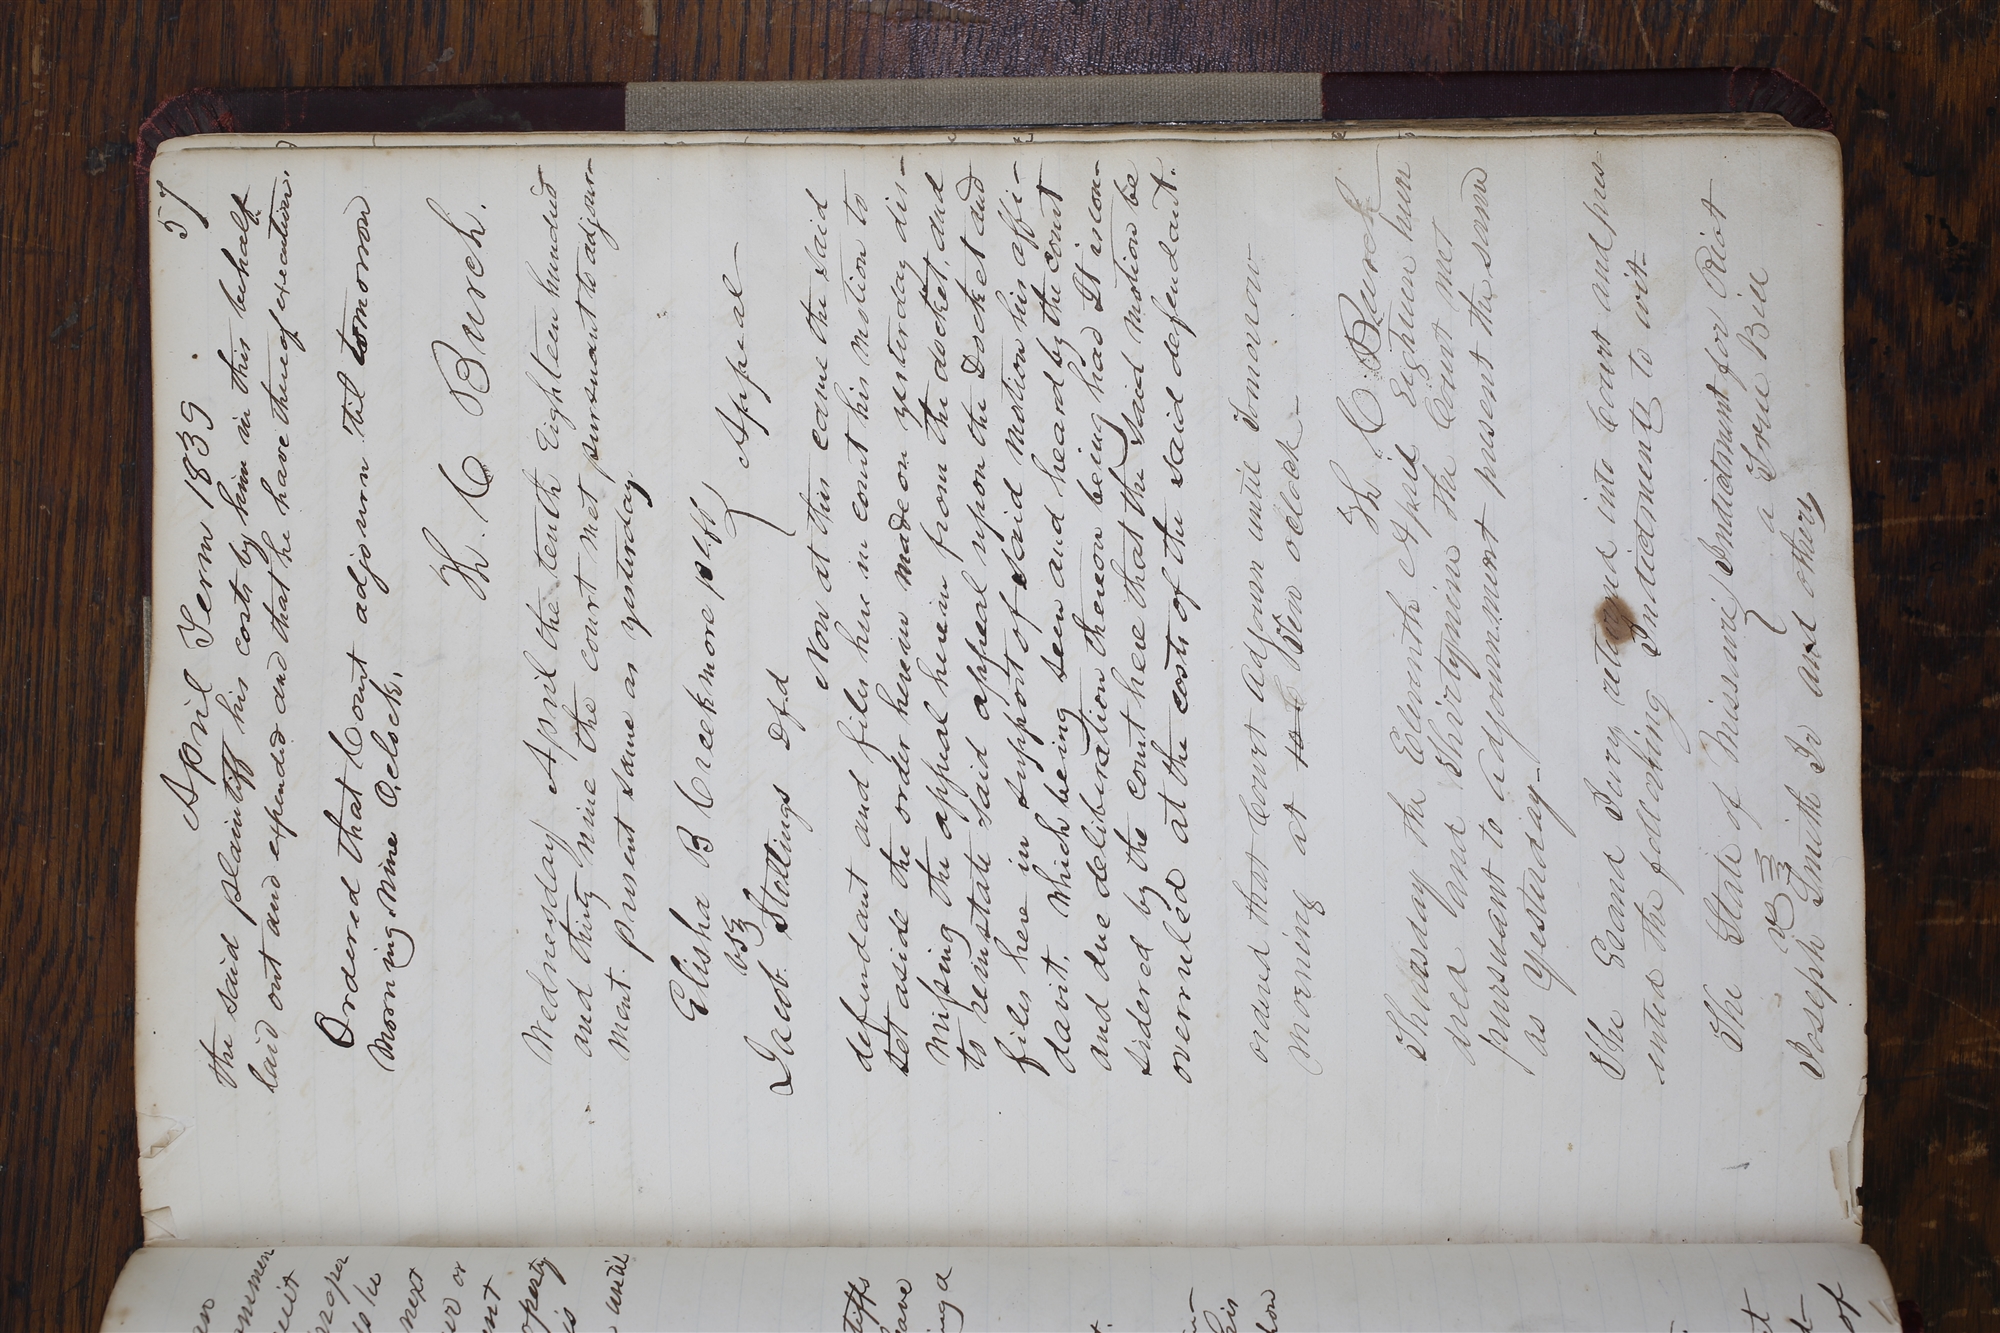 April Term 1839 57
the said plaintiff his costs by him in this behalf
laid out and expended and that he have thereof execution.
Ordered that Court adjourn til tomorrow
Morning Nine O,clock.
Th. C Burch.
Wednesday April the tenth Eighteen hundred
and thirty nine the court met pursuant to adjourn-
ment. present same as yesterday
Elisha B Creekmore plff
vs
Jacob Stallings Dfd
} Appeal
Now at this came the said
defendant and files here in court his motion to
set aside the order herein made on yesterday dis-
missing the appeal herein from the docket, and
to reinstate said appeal upon the Docket and
files here in support of said motion his affi-
davit. Which being seen and heard by the court
and due deliberation thereon being had It is con-
sidered by the court here that the said motion be
overruled at the costs of the said defendant.
ordered that Court adjourn until Tomorrow
Morning at Nin oclock-
Th C Burch
Thursday the Eleventh April Eighteen hun
dred and Thirtynine the Court met
pursuant to adjournment present the same
as yesterday-
The Grand Jury returns into Court and pres-
ented the following Indictments to wit-
The State of Missouri } Indictment for Riot
vs
a True Bill
Joseph Smith Jr and others